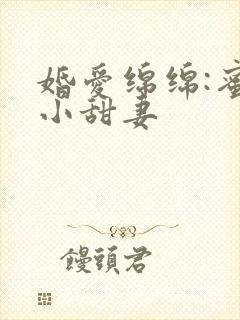 婚爱绵绵:蜜
小甜妻
馒頭君